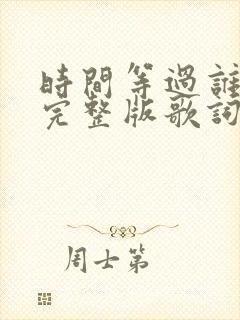 時間等過誰
完整版歌詞
周士第